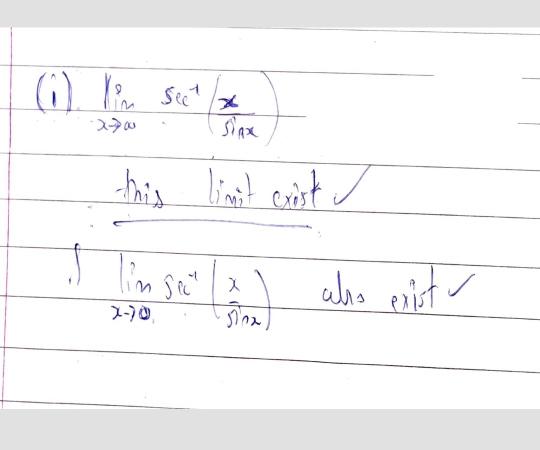 (i) lim x→∞ sec⁻¹ (x/sinx)
this limit exist ✓
lim x→0 sec⁻¹ (x/sinx) also exist ✓